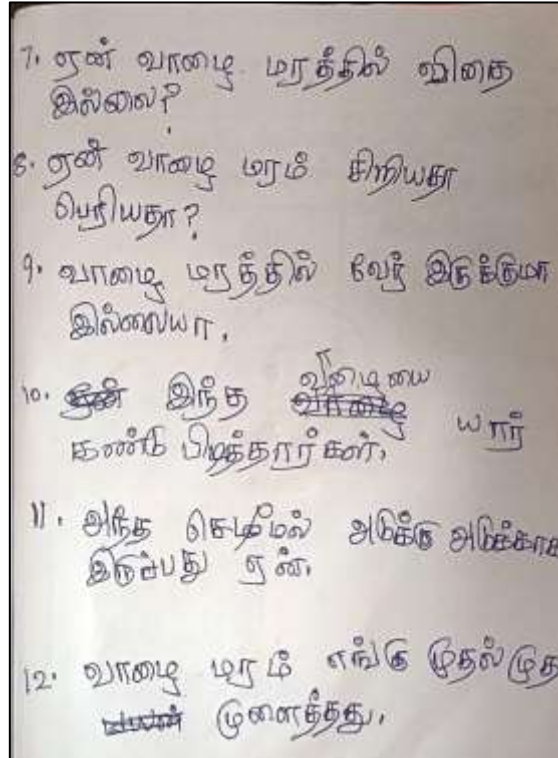 7. ஏன் வாழை மரத்தில் விதை
இல்லை?
8. ஏன் வாழை மரம் சிறியதா
பெரியதா?
9. வாழை மரத்தில் வேர் இருக்குமா
இல்லையா.
10. இந்த யார்
கண்டு பிடித்தார்கள்.
11. அந்த செடிமேல் அடுக்கு அடுக்காக
இருப்பது ஏன்.
12. வாழை மரம் எங்கு முதல்முத
முளைத்தது.